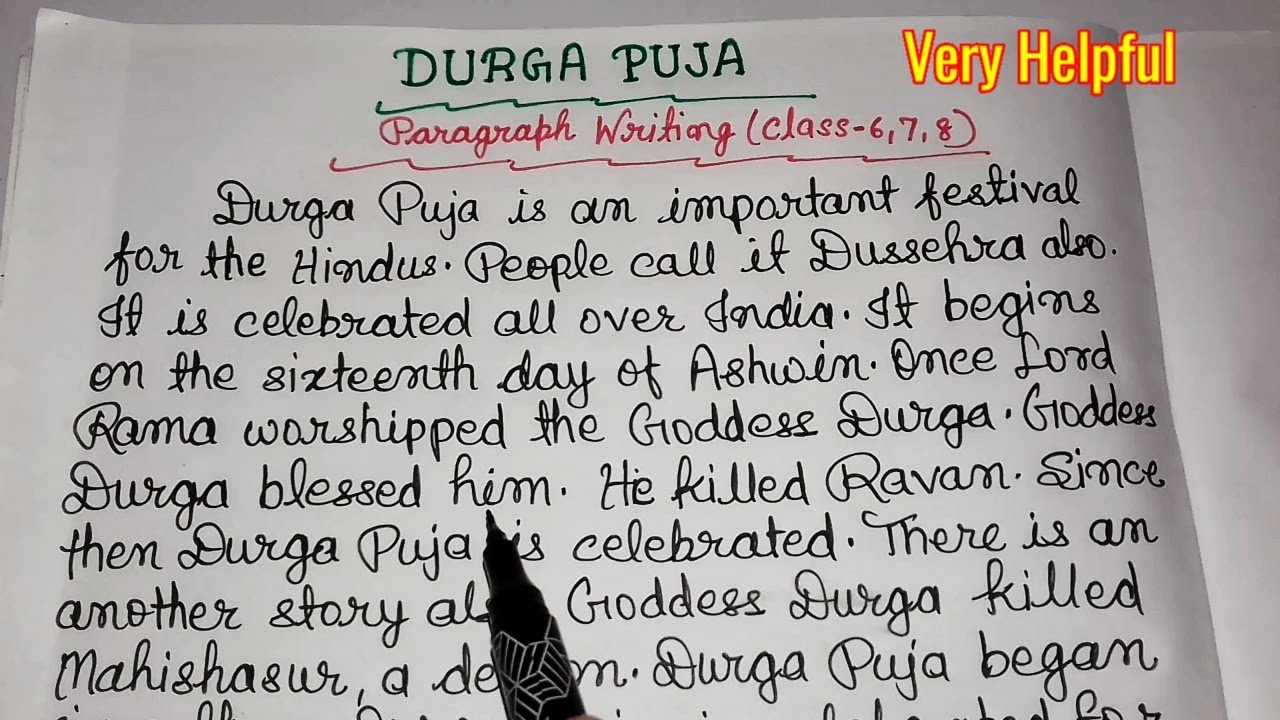 DURGA PUJA
Very Helpful
Paragraph Writing (Class-6,7,8)
Durga Puja is an important festival
for the Hindus. People call it Dussehra also.
It is celebrated all over India. It begins
on the sixteenth day of Ashwin. Once Lord
Rama worshipped the Goddess Durga. Goddess
Durga blessed him. He killed Ravan. Since
then Durga Puja is celebrated. There is an
another story Goddess Durga killed
Mahishasur, a Durga Puja began
for